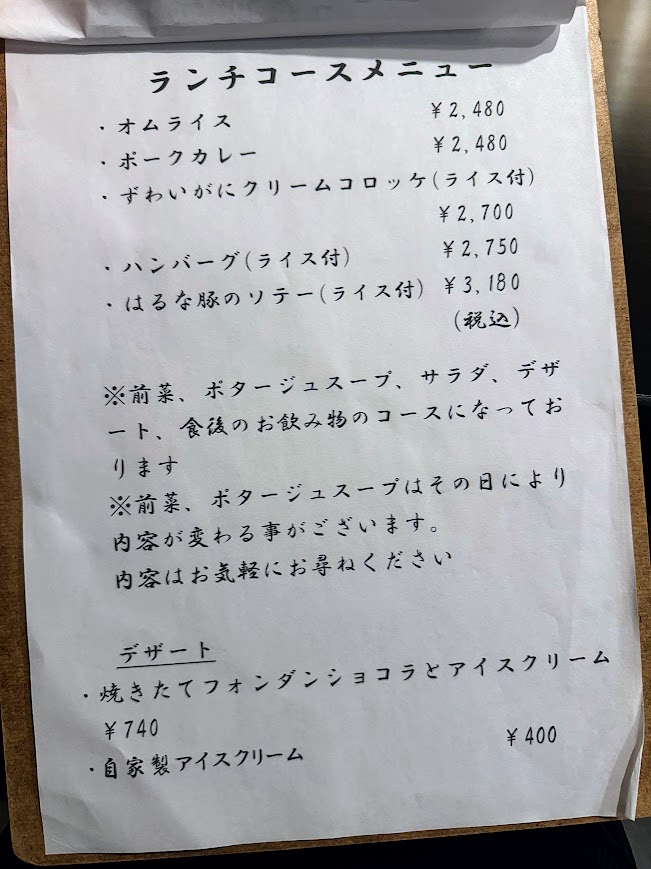 ランチコースメニュー
・オムライス ￥2,480
・ポークカレー ￥2,480
・ずわいがにクリームコロッケ(ライス付)
￥2,700
・ハンバーグ(ライス付) ￥2,750
・はるな豚のソテー(ライス付) ￥3,180
(税込)
※前菜、ポタージュスープ、サラダ、デザ
ート、食後のお飲み物のコースになってお
ります
※前菜、ポタージュスープはその日により
内容が変わる事がございます。
内容はお気軽にお尋ねください
デザート
・焼きたてフォンダンショコラとアイスクリーム
￥740
・自家製アイスクリーム ￥400